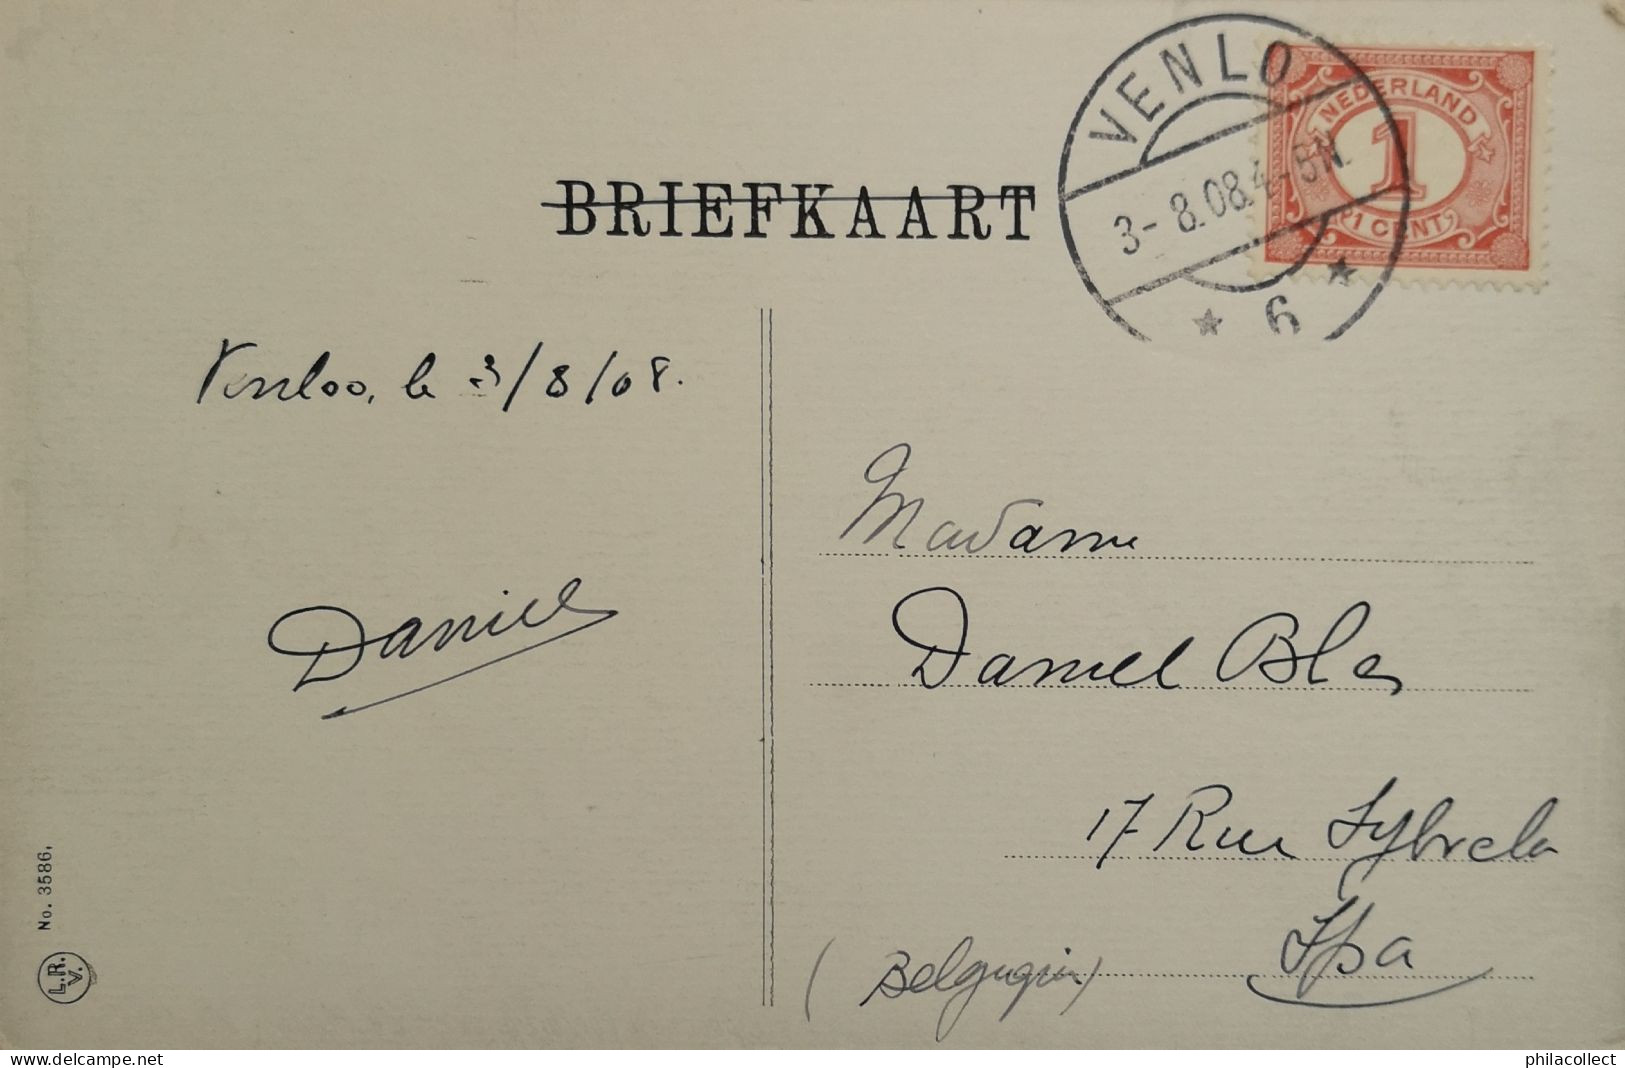 BRIEFKAART
VENLO
3-8.08.4-5N.
6
NEDERLAND
1
1 CENT
Venloo, le 3/8/08.
Daniel
Madame
Daniel
17 Rue
Spa
(Belgique)
No. 3586.
L.R.
V.
delcampe.net
philacollect